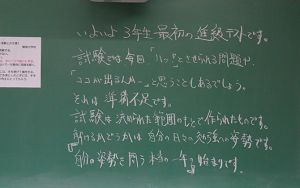 いよいよ3年生最初の進級テストです。
試験では毎回「ハッ」とさせられる問題や、
「ココが出るんかー」と思うこともあるでしょう。
それは準備不足です。
試験は決められた範囲のもとで作られたものです。
解けるかどうかは自分の日々の勉強への姿勢です。
自分の姿勢を問う 一年 始まりです。